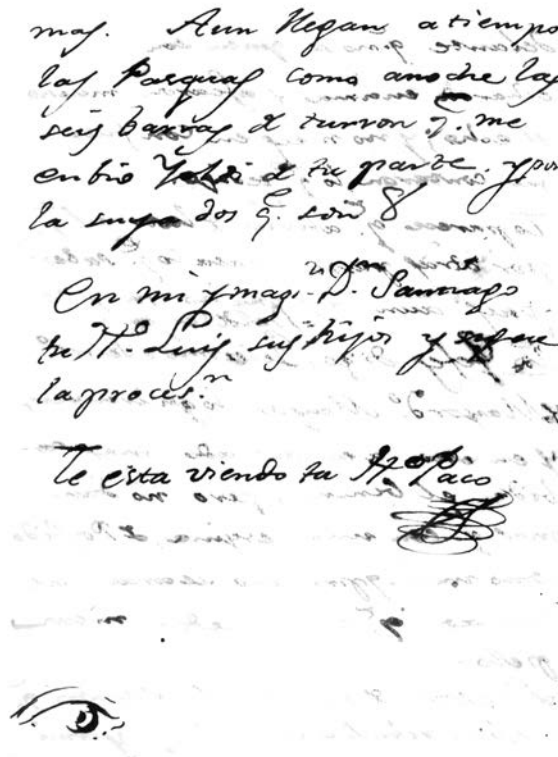 mas. Aun llegan a tiempo
las Pasquas como anoche las
seis barras d turron q.e me
enbio d tu parte. y por
la suya dos q.e son 8
En mi ymagi.n D.n Santiago
tu H.o Luis sus hijos y sigue
la proces.n
Te esta viendo tu H.o Paco